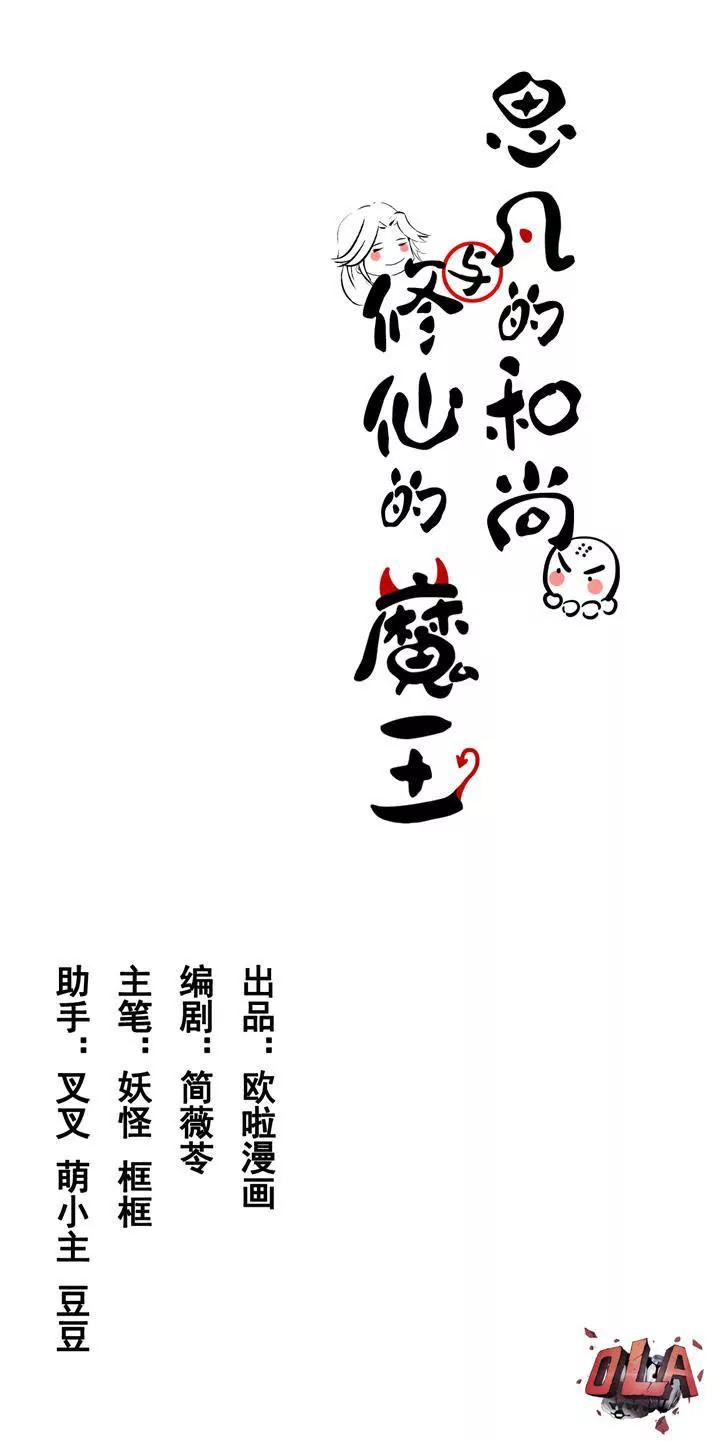 思凡的和尚
与
修仙的魔王
出品：欧啦漫画
编剧：简薇苓
主笔：妖怪 框框
助手：叉叉 萌小主 豆豆
OLA